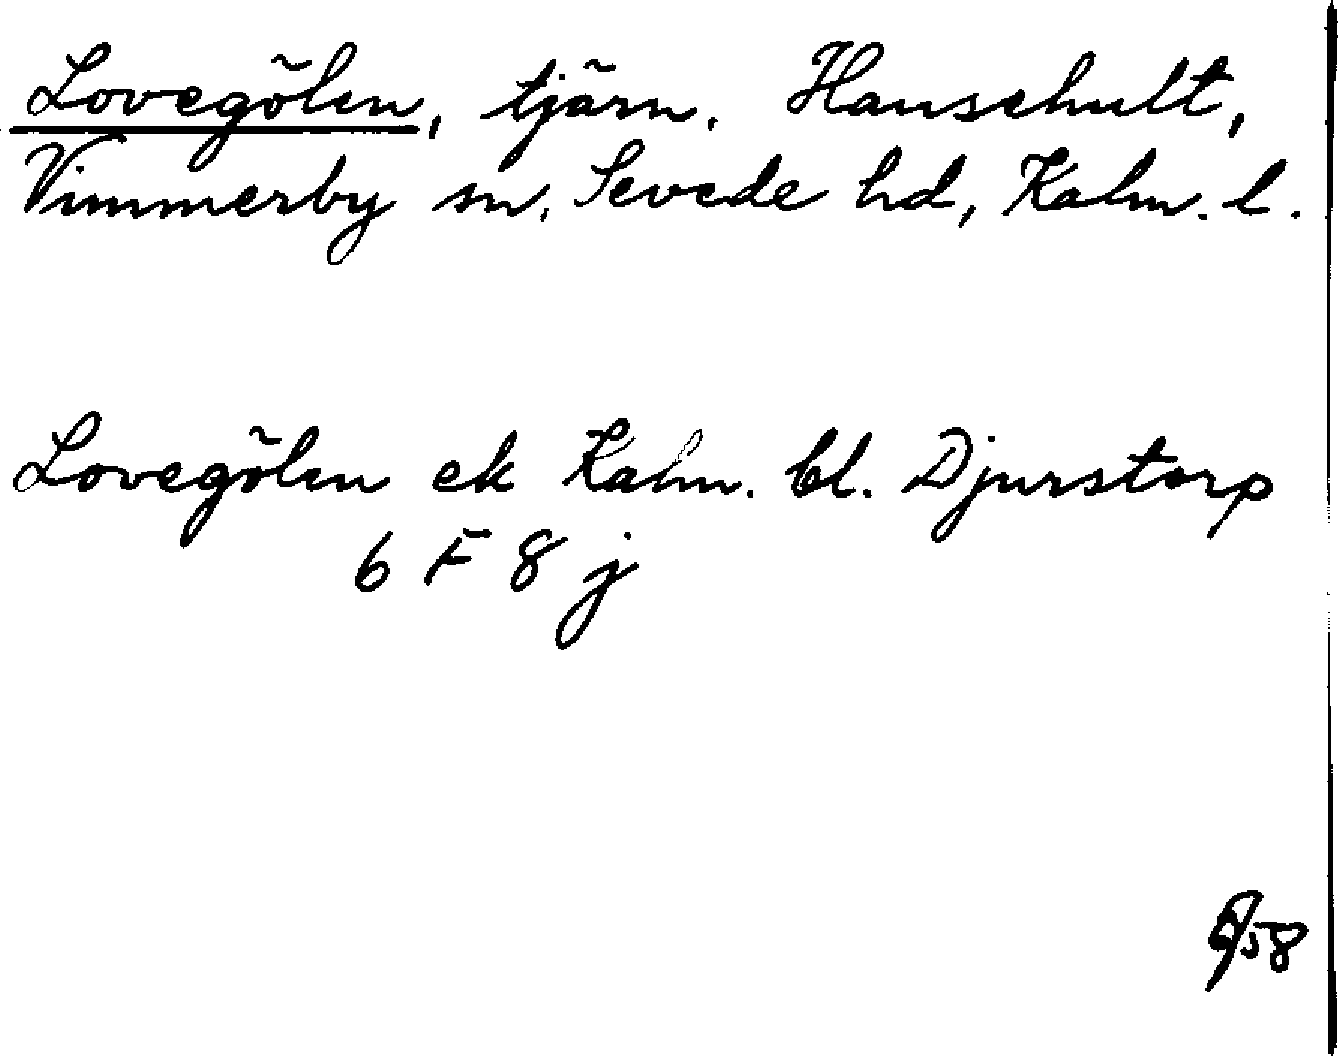 Lovegölen, tjärn. Hanschult,
Vimmerby sn, Sevede hd, Kalm. l.
Lovegölen ek Kalm. bl. Djurstorp
6 F 8 j